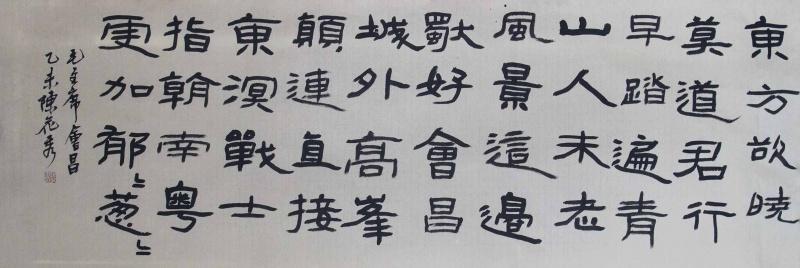 東方欲曉
莫道君行
早踏遍青
山人未老
風景這邊
獨好會昌
城外高峯
顛連直接
東溟戰士
指看南粵
更加郁〻葱〻
毛主席會昌
乙未陳花秀